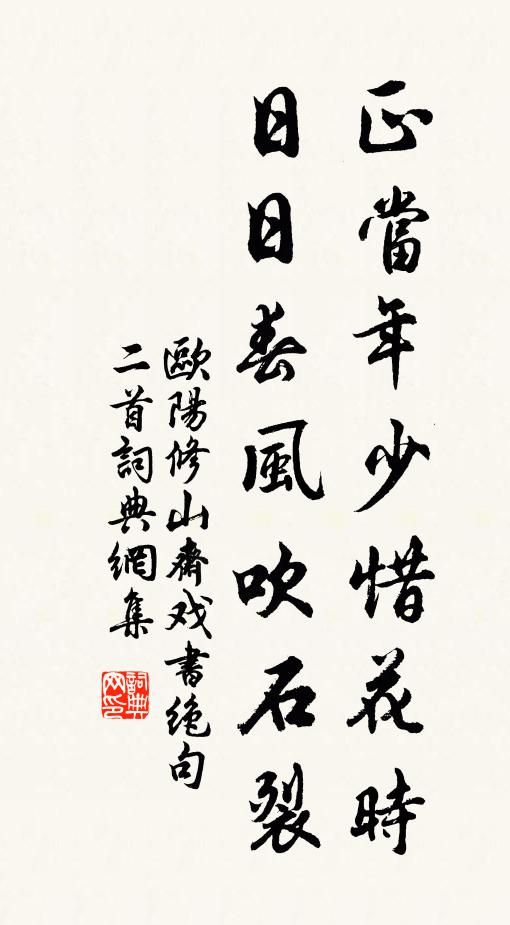 正當年少惜花時
日日春風吹石裂
歐陽修山齋戏書絶句
二首詞典網集
詞典网印